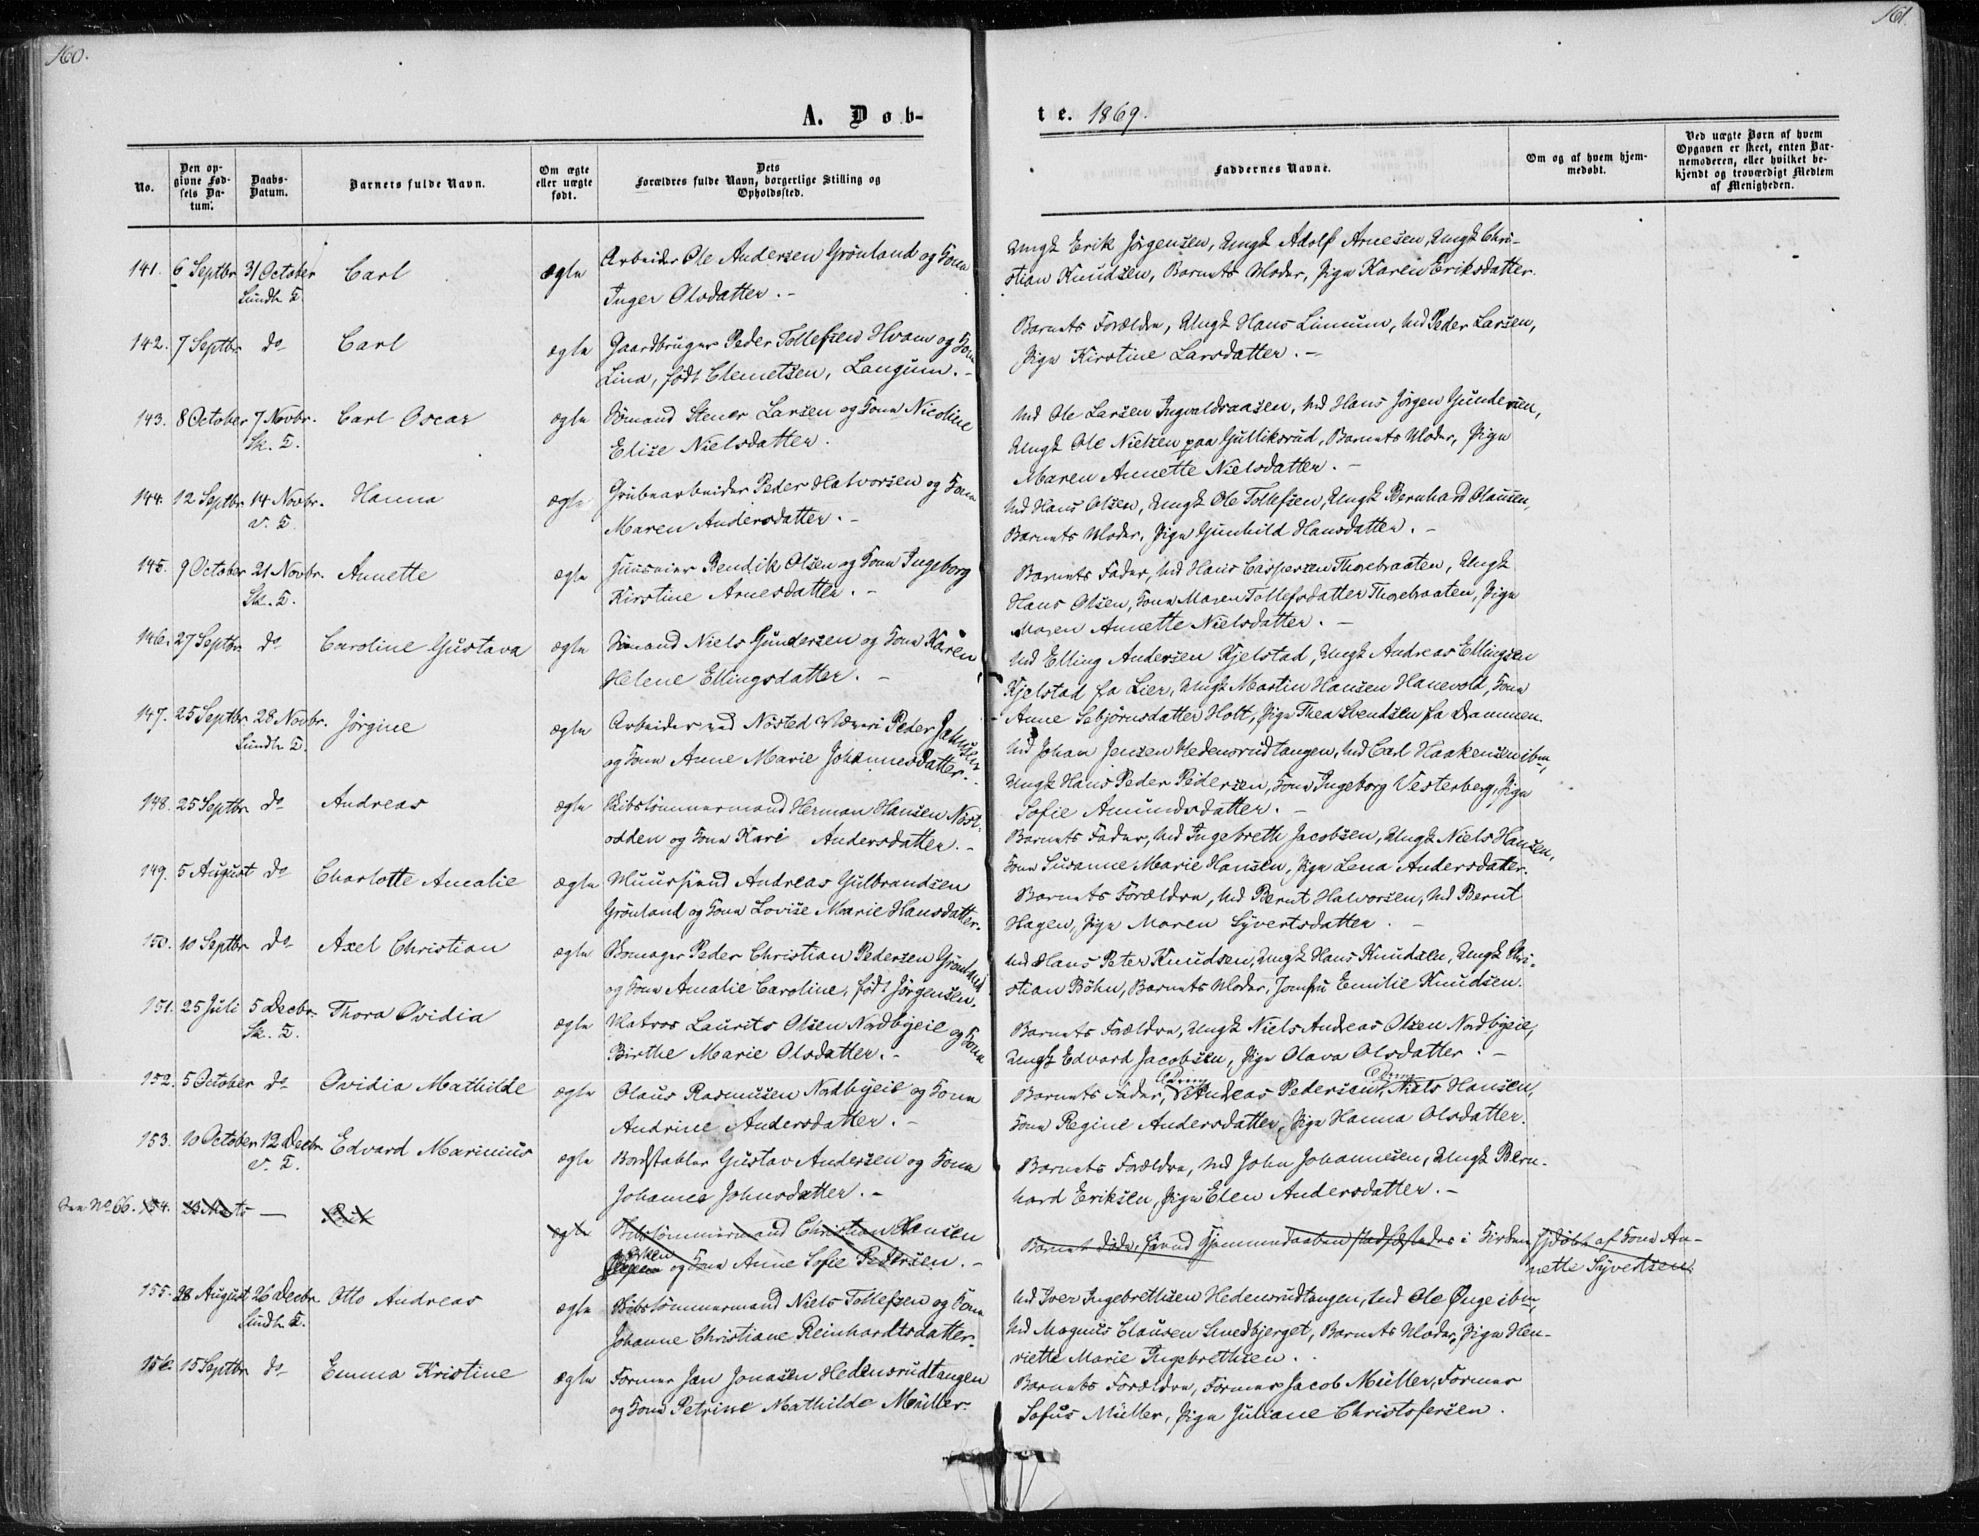 160.
161.
A. Døb-
te. 1869.
No.
Den opgivne Fødsels Datum.
Daabs-Datum.
Barnets fulde Navn.
Om ægte eller uægte født.
Dets Forældres fulde Navn, borgerlige Stilling og Opholdssted.
Faddernes Navne.
Om og af hvem hjemmedøbt.
Ved uægte Børn af hvem Opgaven er skeet, enten Barnemoderen, eller hvilket bekjendt og troværdigt Medlem af Menigheden.
141. 6 Septbr 31 October Carl ægte Arbeider Ole Andersen Grønland og Kone
Sundh. K.
Inger Olsdatter. -
Ungk Erik Jørgensen, Ungk Adolf Arnesen, Ungk Chri-
stian Knudsen, Barnets Moder, Pige Karen Eriksdatter.
142. 7 Septbr do Carl ægte Gaardbruger Peder Tollefsen Hvam og Kone
Lina, født Clemetsen, Langum. -
Barnets Forældre, Ungk Hans Linnum, Ud Peder Larsen,
Pige Kirstine Larsdatter. -
143. 8 October 7 Novbr. Carl Oscar ægte Sømand Stener Larsen og Kone Nicoline
Sk. K.
Elise Nielsdatter.
Ud Ole Larsen Ingvaldraasen, Ud Hans Jørgen Gundersen,
Ungk Ole Nielsen paa Gulliksrud, Barnets Moder, Pige
Maren Annette Nielsdatter. -
144. 12 Septbr 14 Novbr. Hanna ægte Grubearbeider Peder Halvorsen og Kone
v. K.
Maren Andersdatter. -
Ud Hans Olsen, Ungk Ole Tollefsen, Ungk Bernhard Olausen,
Barnets Moder, Pige Gunhild Hansdatter. -
145. 9 October 21 Novbr. Annette ægte Huuseier Bendik Olsen og Kone Ingeborg
Sk. K.
Kirstine Arnesdatter. -
Barnets Fader, Ud Hans Caspersen Thorebraaten, Ungk
Hans Olsen, Kone Maren Tollefsdatter Thorebraaten, Pige
Maren Annette Nielsdatter. -
146. 27 Septbr do Caroline Gustava ægte Sømand Niels Gundersen og Kone Karen
Helene Ellingsdatter. -
Ud Elling Andersen Kjelstad, Ungk Andreas Ellingsen
Kjelstad fa Lier, Ungk Martin Hansen Hanevold, Kone
Anne Sebjørnsdatter Holt, Pige Thea Svendsen fa Drammen.
147. 25 Septbr 28 Novbr. Jørgine ægte Arbeider ved Nøsted Væveri Peder Johnsen
Sundh. K.
og Kone Anne Marie Johannesdatter. -
Ud Johan Jensen Hedensrudtangen, Ud Carl Haakensen ibm,
Ungk Hans Peder Pedersen, Kone Ingeborg Vesterberg, Pige
Sofie Amundsdatter. -
148. 25 Septbr do Andreas ægte Skibstømmermand Herman Hansen Nøst-
odden og Kone Kari Andersdatter. -
Barnets Fader, Ud Ingebreth Jacobsen, Ungk Niels Hansen,
Kone Susanne Marie Hansen, Pige Lena Andersdatter.
149. 5 August do Charlotte Amalie ægte Muursvend Andreas Gulbrandsen
Grønland og Kone Lovise Marie Hansdatter.
Barnets Forældre, Ud Bernt Halvorsen, Ud Bernt
Hagen, Pige Maren Syvertsdatter. -
150. 10 Septbr do Axel Christian ægte Skomager Peder Christian Pedersen Grønland
og Kone Amalie Caroline, født Jørgensen.
Ud Hans Peter Knudsen, Ungk Hans Knudsen, Ungk Chri-
stian Bøhn, Barnets Moder, Jomfru Emilie Knudsen.
151. 25 Juli 5 Decbr. Thora Ovidia ægte Matros Laurits Olsen Nordbyeie og Kone
Sk. K.
Birthe Marie Olsdatter. -
Barnets Forældre, Ungk Niels Andreas Olsen Nordbyeie,
Ungk Edvard Jacobsen, Pige Olava Olsdatter. -
152. 5 October do Ovidia Mathilde ægte Olaus Rasmussen Nordbyeie og Kone
Andrine Andersdatter. -
Barnets Fader, Andreas Pedersen, Niels Hansen,
Kone Regine Andersdatter, Pige Hanna Olsdatter.
153. 10 October 12 Decbr Edvard Marinius ægte Bordstabler Gustav Andersen og Kone
v. K.
Johanne Johnsdatter. -
Barnets Forældre, Ud John Johannesen, Ungk Bern-
hard Eriksen, Pige Elen Andersdatter. -
See No 66. 154. — ægte Skibstømmermand Christian Hansen
og Kone Anne Sofie Pedersen. -
Barnet døde, førend Hjemmedaaben stadfæstedes i Kirken
Hjdøbt af Kone An-
nette Syvertsen.
155. 28 August 26 Decbr. Otto Andreas ægte Skibstømmermand Niels Tollefsen og Kone
Sundh. K.
Johanne Christiane Reinhardtsdatter.
Ud Iver Ingebrethsen Hedensrudtangen, Ud Ole Ønge ibm,
Ud Magnus Clausen Smedbjerget, Barnets Moder, Pige Hen-
riette Marie Ingebrethsen.
156. 15 Septbr do Emma Kristine ægte Former Jan Jonasen Hedensrudtangen
og Kone Petrine Mathilde Müller.
Barnets Forældre, Former Jacob Müller, Former
Sofus Müller, Pige Juliane Christofersen.